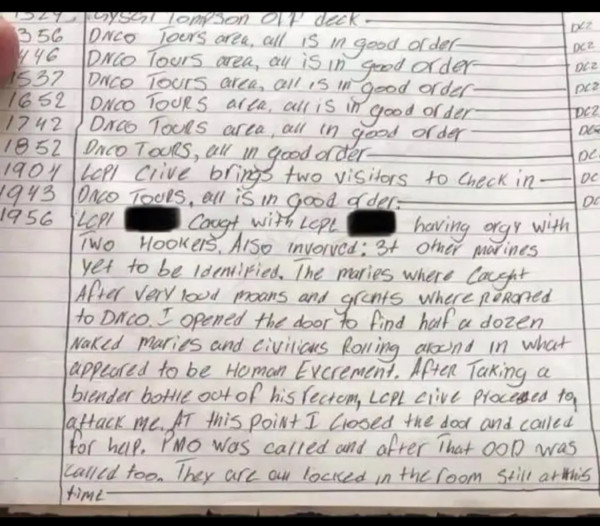 deck.
1356 DNCO Tours area, all is in good order DCZ
1446 DNCO Tours area, all is in good order DCZ
1537 DNCO Tours area, all is in good order DCZ
1652 DNCO TOURS area, all is in good order DCZ
1742 DNCO Tours area, all in good order DC
1852 DNCO TOURS, all in good order DC
1904 LCPl Clive brings two visitors to check in DC
1943 DNCO TOURS, all is in good order. DC
1956 LCPl Caugt with LCPL having orgy with
Two Hookers. Also involved: 3+ other marines
yet to be identified. The maries where Caught
After very loud moans and grants where Reported
to DNCO. I opened the door to find half a dozen
Naked maries and civilians Rolling around in what
appeared to be Human Excrement. After Taking a
blender bottle out of his rectum, LCPL Clive proceeded to
attack me. AT this point I closed the door and called
for help. PMO was called and after That OOD was
called too. They are all locked in the room still at this
time